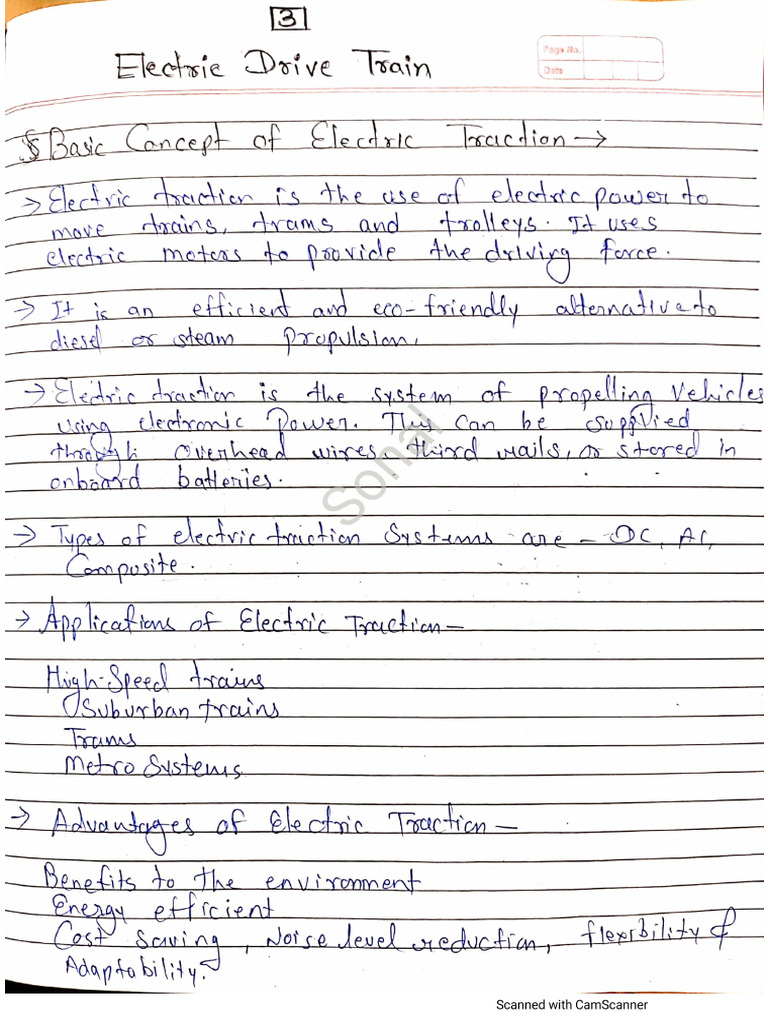 3
Electric Drive Train
Page No.
Date
§ Basic Concept of Electric Traction →
→ Electric traction is the use of electric power to
move trains, trams and trolleys. It uses
electric motors to provide the driving force.
→ It is an efficient and eco-friendly alternative to
diesel or steam propulsion.
→ Electric traction is the system of propelling vehicles
using electronic Power. This can be supplied
through overhead wires, third rails, or stored in
onboard batteries.
Sonal
→ Types of electric traction Systems are - DC, AC,
Composite.
→ Applications of Electric Traction -
High-Speed trains
Suburban trains
Trams
Metro Systems
→ Advantages of Electric Traction -
Benefits to the environment
Energy efficient
Cost saving, Noise level reduction, flexibility &
Adaptability.
Scanned with CamScanner